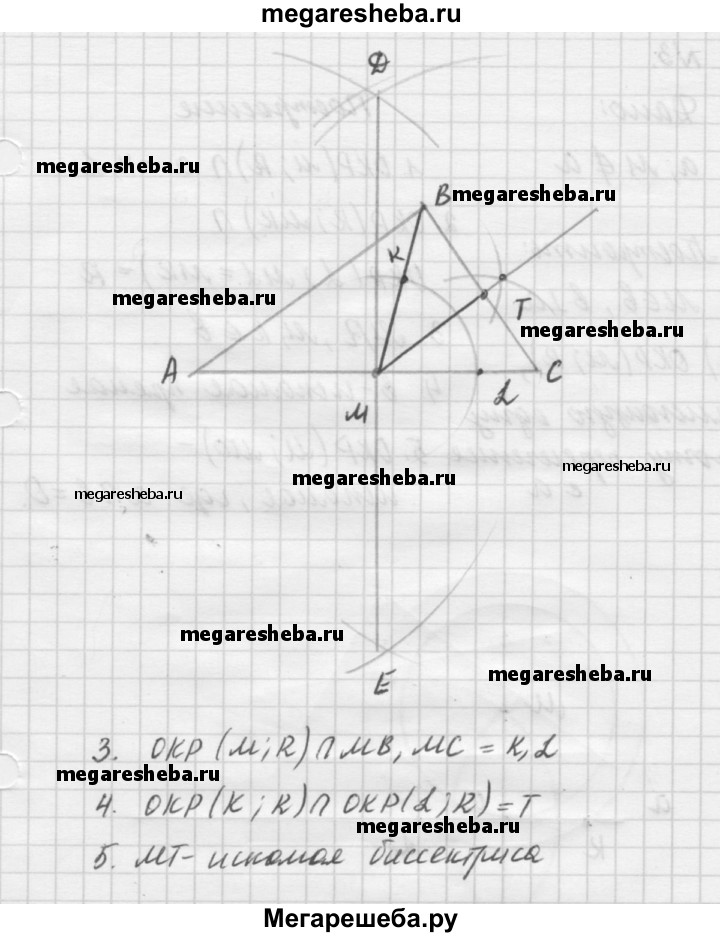 megaresheba.ru
D
megaresheba.ru
B
megaresheba.ru
K
megaresheba.ru
T
megaresheba.ru
A
C
L
M
megaresheba.ru
megaresheba.ru
megaresheba.ru
megaresheba.ru
megaresheba.ru
E
3. ОКР (M; R) ∩ MB, MC = K, L
megaresheba.ru
4. ОКР (K; R) ∩ ОКР (L; R) = T
megaresheba.ru
5. MT - искомая биссектриса
Мегарешеба.ру